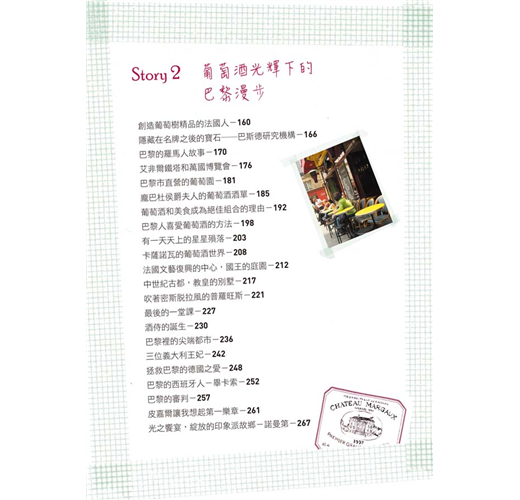 Story 2 葡萄酒光輝下的
巴黎漫步
創造葡萄樹精品的法國人－160
隱藏在名牌之後的寶石──巴斯德研究機構－166
巴黎的羅馬人故事－170
艾菲爾鐵塔和萬國博覽會－176
巴黎市直營的葡萄園－181
龐巴杜侯爵夫人的葡萄酒酒單－185
葡萄酒和美食成為絕佳組合的理由－192
巴黎人喜愛葡萄酒的方法－198
有一天天上的星星殞落－203
卡薩諾瓦的葡萄酒世界－208
法國文藝復興的中心，國王的庭園－212
中世紀古都，教皇的別墅－217
吹著密斯脫拉風的普羅旺斯－221
最後的一堂課－227
酒侍的誕生－230
巴黎裡的尖端都市－236
三位義大利王妃－242
拯救巴黎的德國之愛－248
巴黎的西班牙人－畢卡索－252
巴黎的審判－257
皮嘉爾讓我想起第一樂章－261
光之饗宴，綻放的印象派故鄉－諾曼第－267
CHATEAU MARGAUX
1937